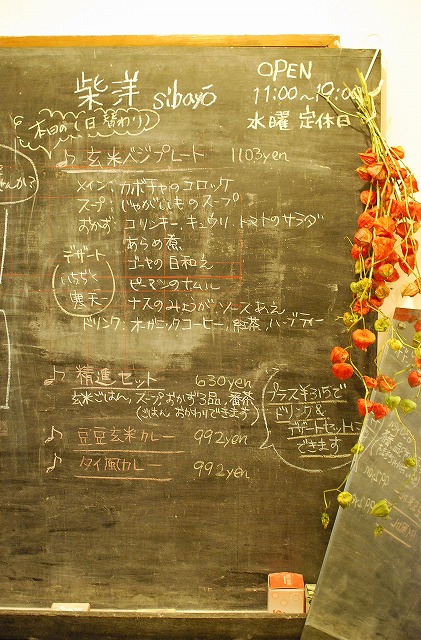 柴洋 sibayo
OPEN
11:00~19:00
水曜 定休日
本日の(日替わり)
♪ 玄米ベジプレート 1103yen
メイン: カボチャのコロッケ
スープ: じゃがいものスープ
おかず: コリンキー、キュウリ、トマトのサラダ
あらめ煮
ゴーヤの白和え
ピーマンのナムル
ナスのみょうがソースあえ
デザート
いちぢく
寒天
ドリンク: オーガニックコーヒー, 紅茶, ハーブティー
♪ 精進セット 630yen
玄米ごはん, スープ おかず3品, 番茶
(ごはん おかわりできます)
プラス¥315で
ドリンク&
デザートセットに
できます
♪ 豆豆玄米カレー 992yen
♪ タイ風カレー 992yen